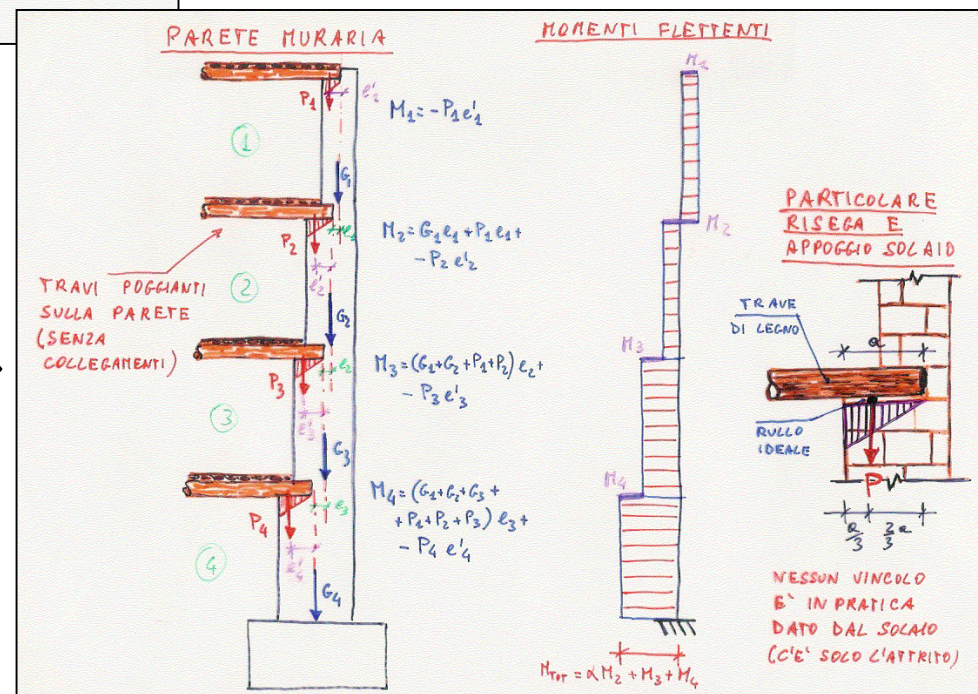 PARETE MURARIA
P1
e'1
M1 = -P1 e'1
1
G1
P2
e1
e'2
M2 = G1 e1 + P1 e1 +
- P2 e'2
TRAVI POGGIANTI
SULLA PARETE
(SENZA
COLLEGAMENTI)
2
G2
P3
e2
e'3
M3 = (G1+G2+P1+P2) e2 +
- P3 e'3
3
G3
P4
e3
e'4
M4 = (G1+G2+G3+
+P1+P2+P3) e3 +
- P4 e'4
4
G4
MOMENTI FLETTENTI
M1
M2
M3
M4
MTOT = αM2 + M3 + M4
PARTICOLARE
RISEGA E
APPOGGIO SOLAIO
TRAVE
DI LEGNO
a
RULLO
IDEALE
P
a/3
2/3 a
NESSUN VINCOLO
E' IN PRATICA
DATO DAL SOLAIO
(C'E' SOLO L'ATTRITO)